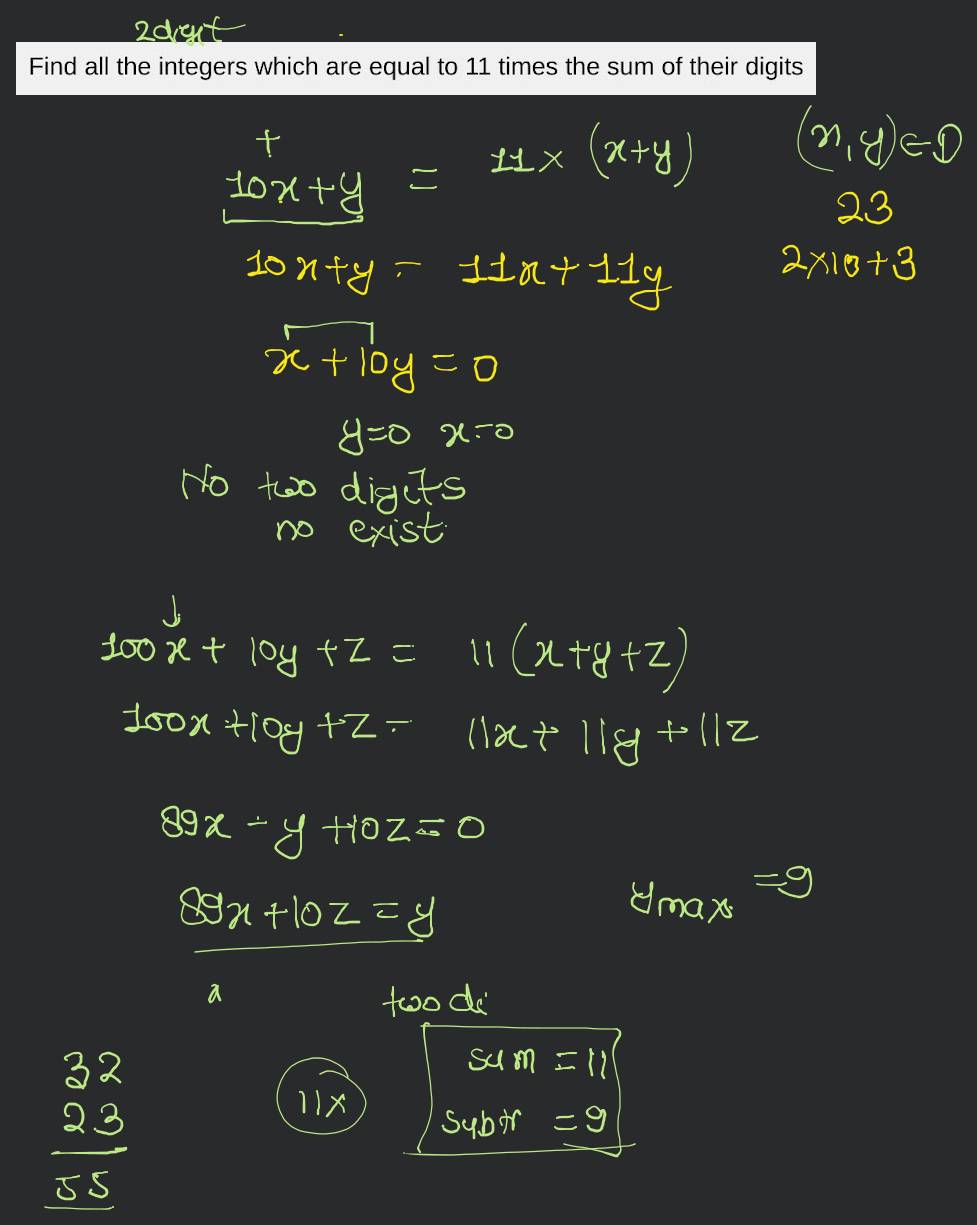 2digit
Find all the integers which are equal to 11 times the sum of their digits
10x+y = 11× (x+y) (x,y)∈D
23
10x+y = 11x+11y 2×10+3
x+10y=0
y=0 x=0
No two digits
no exist
100x+ 10y +z = 11(x+y+z)
100x+10y+z= 11x+11y+11z
89x-y+10z=0
ymax =9
89x+10z=y
two di
32 sum =11
23 11x subtr =9
55